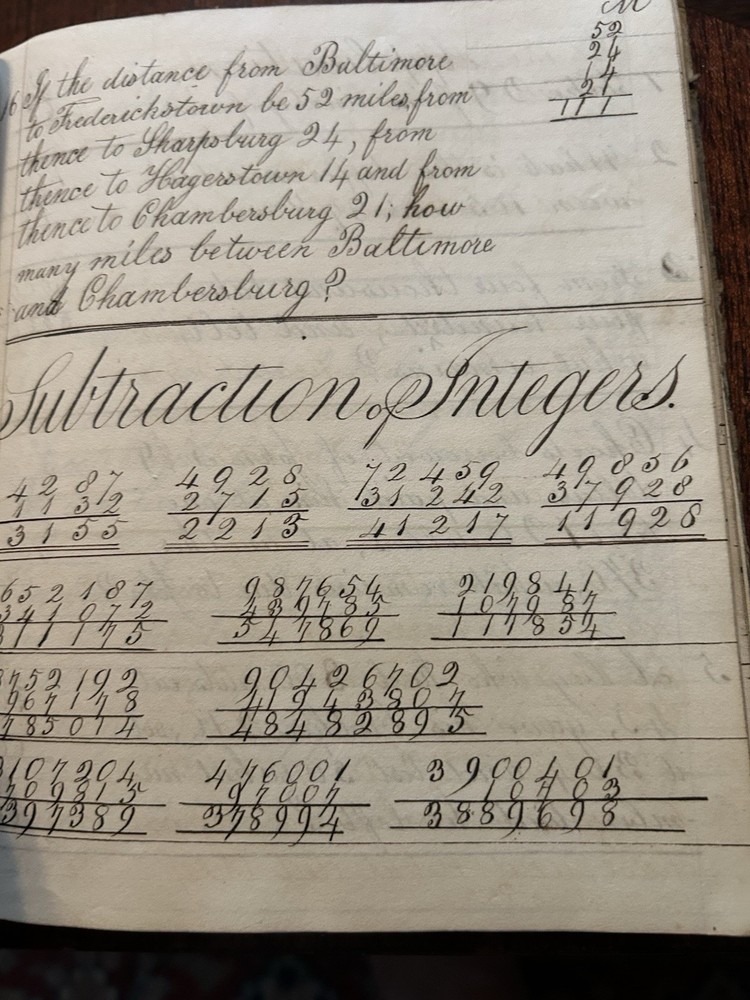 M
52
24
14
21
111
16 If the distance from Baltimore
to Frederickstown be 52 miles, from
thence to Sharpsburg 24, from
thence to Hagerstown 14 and from
thence to Chambersburg 21; how
many miles between Baltimore
and Chambersburg?
Subtraction of Integers.
4287 4928 72459 49856
1132 2715 31242 37928
3155 2213 41217 11928
652187 987654 219841
341072 439785 107987
311175 547869 111854
752192 90426702
967178 41943807
785014 48482895
107204 476001 3900401
709815 97007 10703
397389 378994 3889698